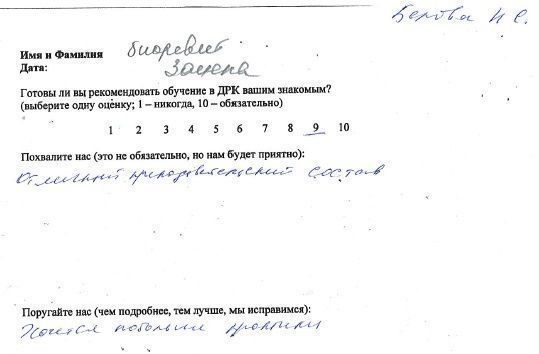 Белова Н С.
Имя и Фамилия
Дата:
Готовы ли вы рекомендовать обучение в ДРК вашим знакомым?
(выберите одну оценку; 1 – никогда, 10 – обязательно)
1 2 3 4 5 6 7 8 9 10
Похвалите нас (это не обязательно, но нам будет приятно):
Отличный преподавательский состав
Поругайте нас (чем подробнее, тем лучше, мы исправимся):
Хочется побольше практики